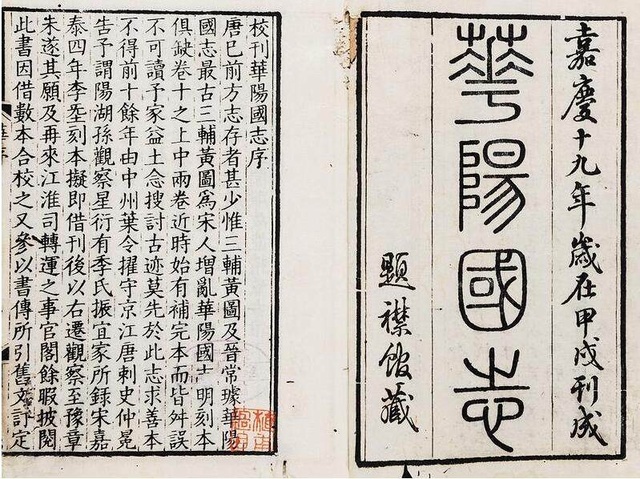 嘉慶十九年歲在甲戌刊成
華陽國志
題襟館藏
校刊華陽國志序
唐已前方志存者甚少惟三輔黃圖及晉常璩華陽
國志最古三輔黃圖爲宋人增亂華陽國志明刻本
俱缺卷十之上中兩卷近時始有補完本而皆舛誤
不可讀予家益土念搜討古迹莫先於此志求善本
不得前十餘年由中州葉令擢守京江唐刺史仲冕
告予謂陽湖孫觀察星衍有季氏振宜家所録宋嘉
泰四年李𡌴刻本擬即借刊後以右遷觀察至豫章
未遂其願及再來江淮司轉運之事官閣餘暇披閱
此書因借數本合校之又參以書傳所引舊文訂定